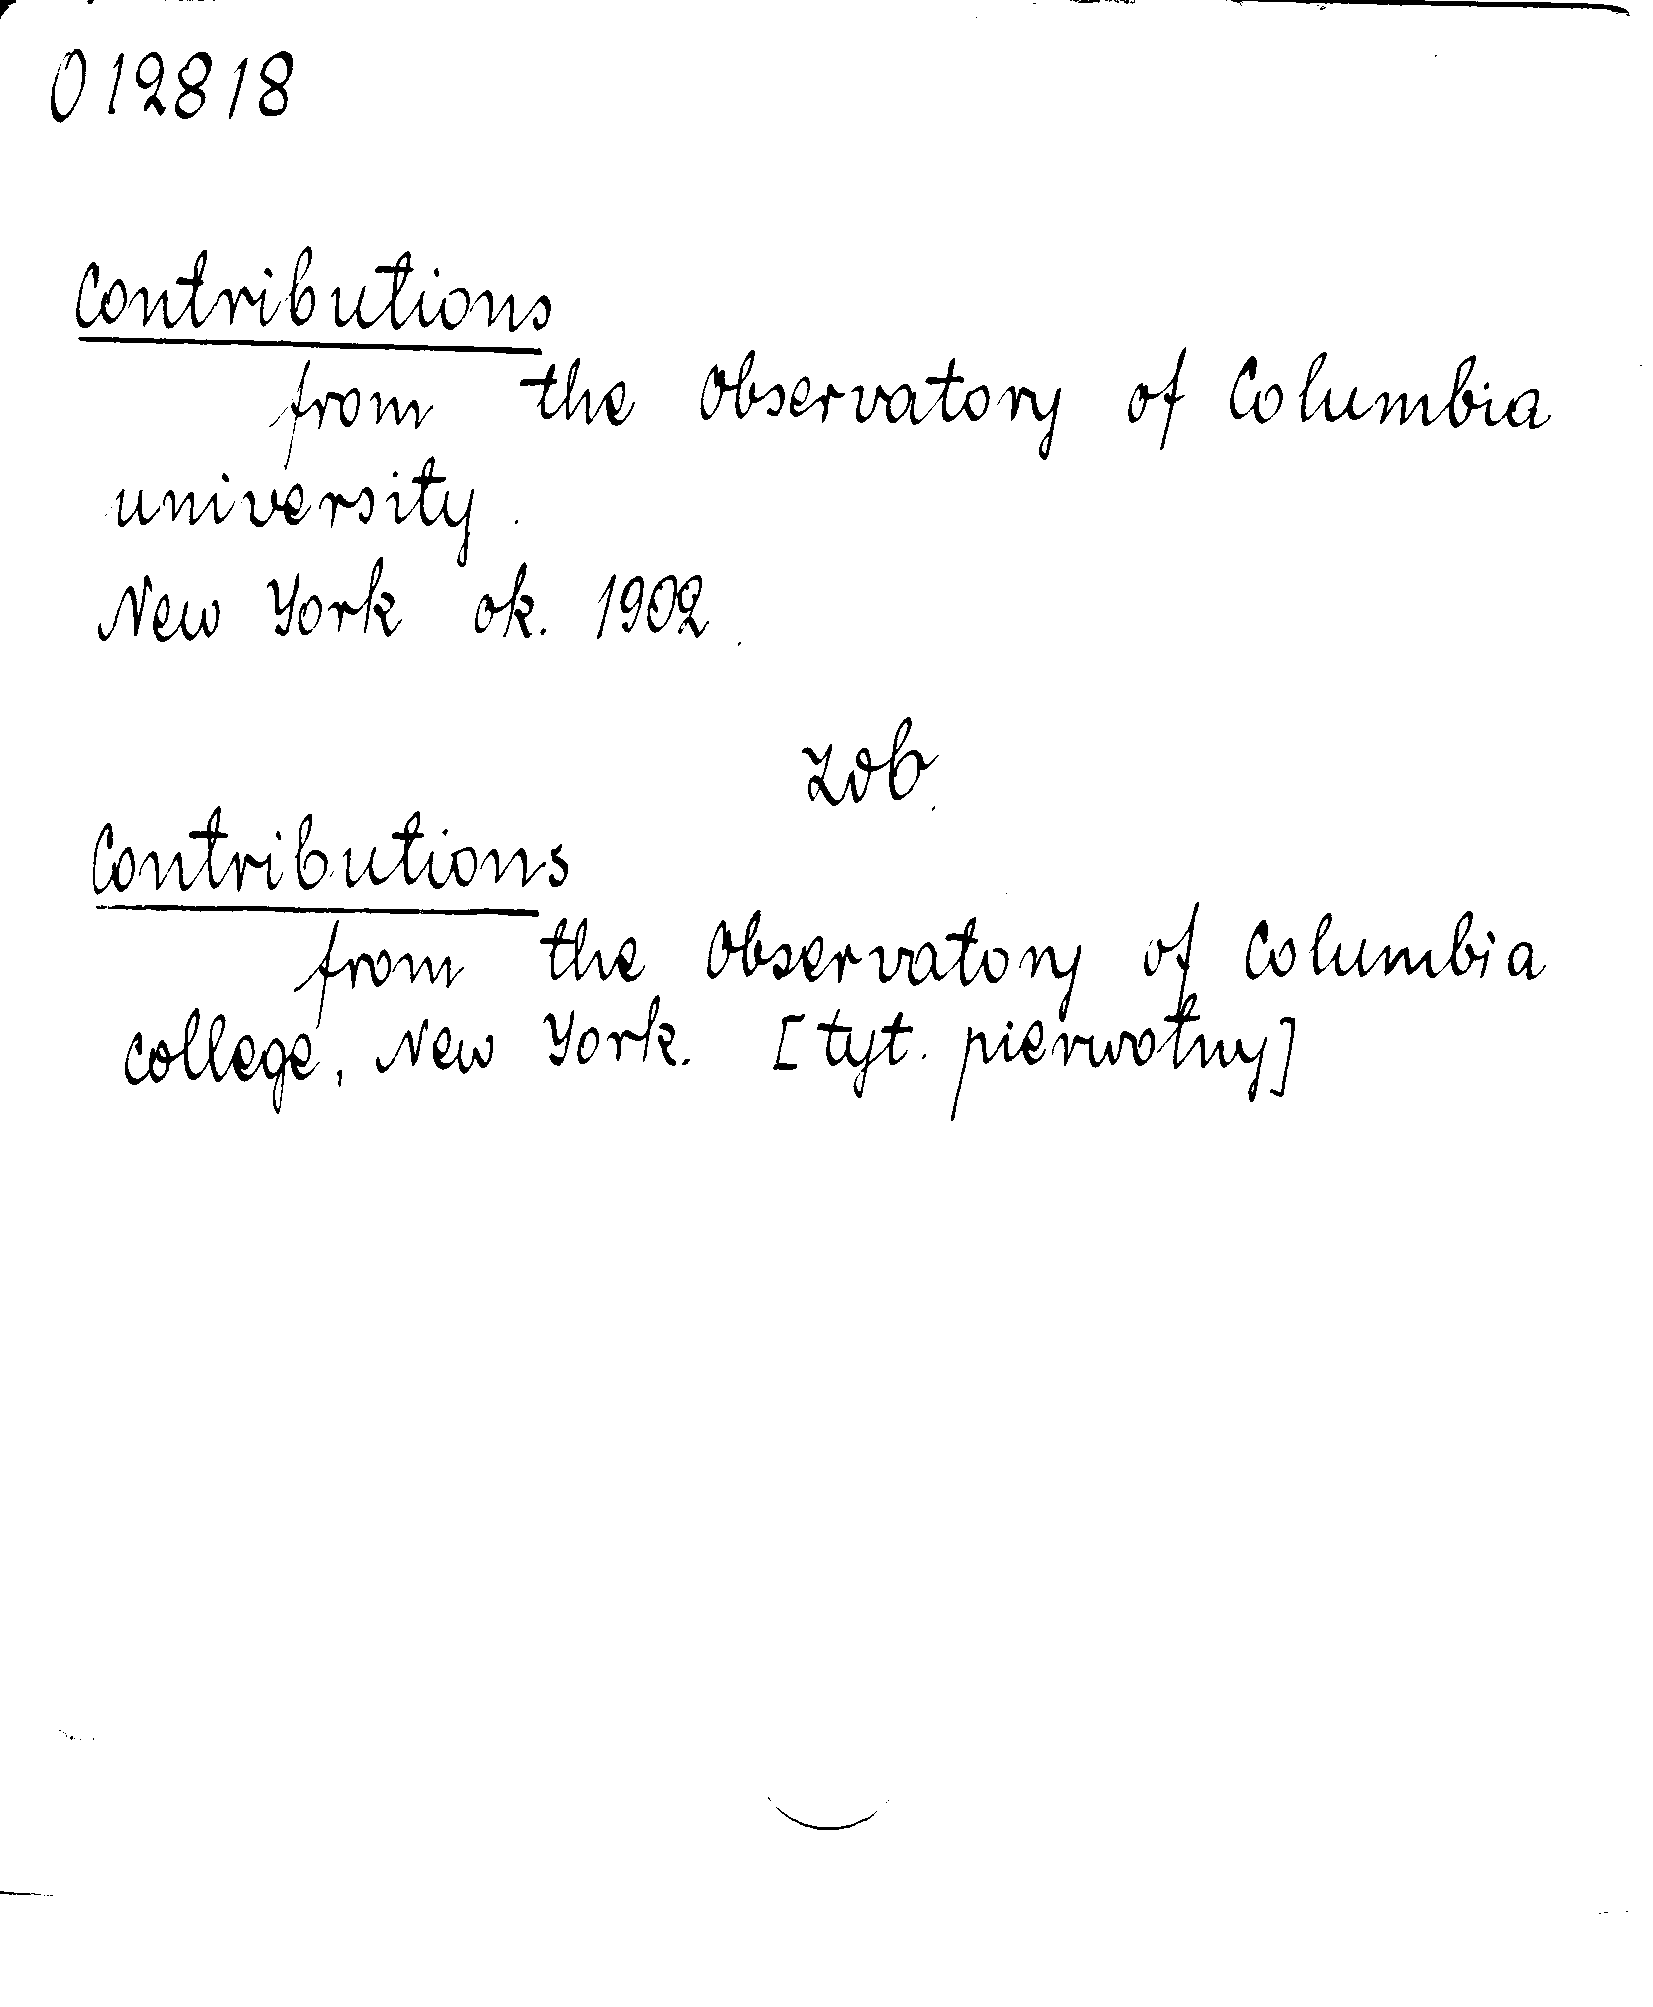 012818
Contributions
from the Observatory of Columbia
university.
New York ok. 1902.
zob.
Contributions
from the Observatory of Columbia
college, New York. [tyt. pierwotny]